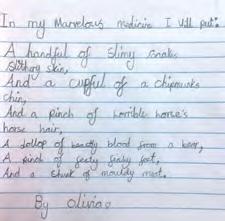 In my Marvelous medicine I will put:
A handful of slimy snake
Slithery skin,
And a cupful of a chipmunks
chin,
And a pinch of horrible horse's
horse hair,
A dollop of blood from a bear,
A pinch of feet,
And a chunk of mouldy meat.
By Olivia